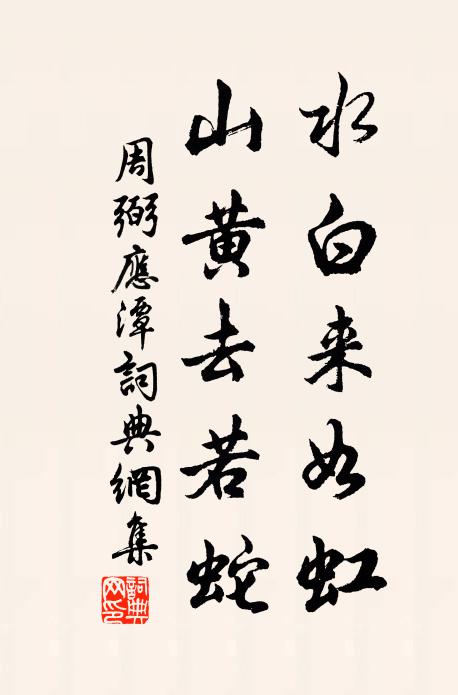 水白来如虹
山黄去若蛇
周弼應潭詞典網集
詞典网印